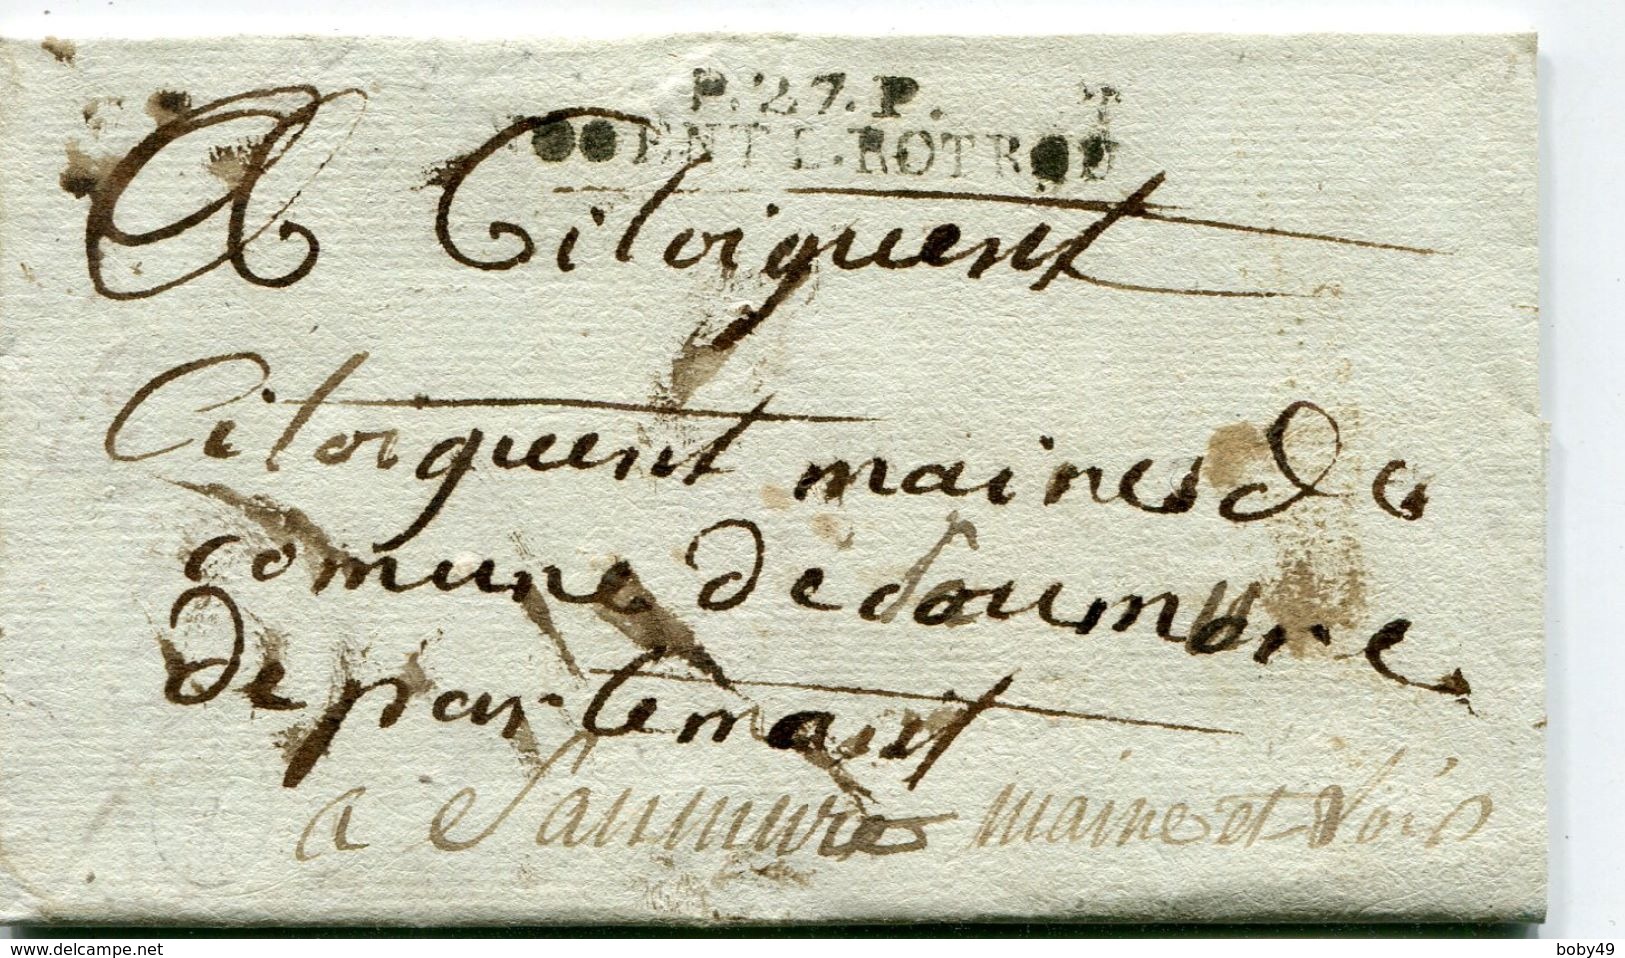 P.27.P.
NOGENT L.ROTROU
A Citoiguent
Citoiguent maines de
comune de Soumure
departemant
a Saumure maine et Loir
www.delcampe.net
boby49